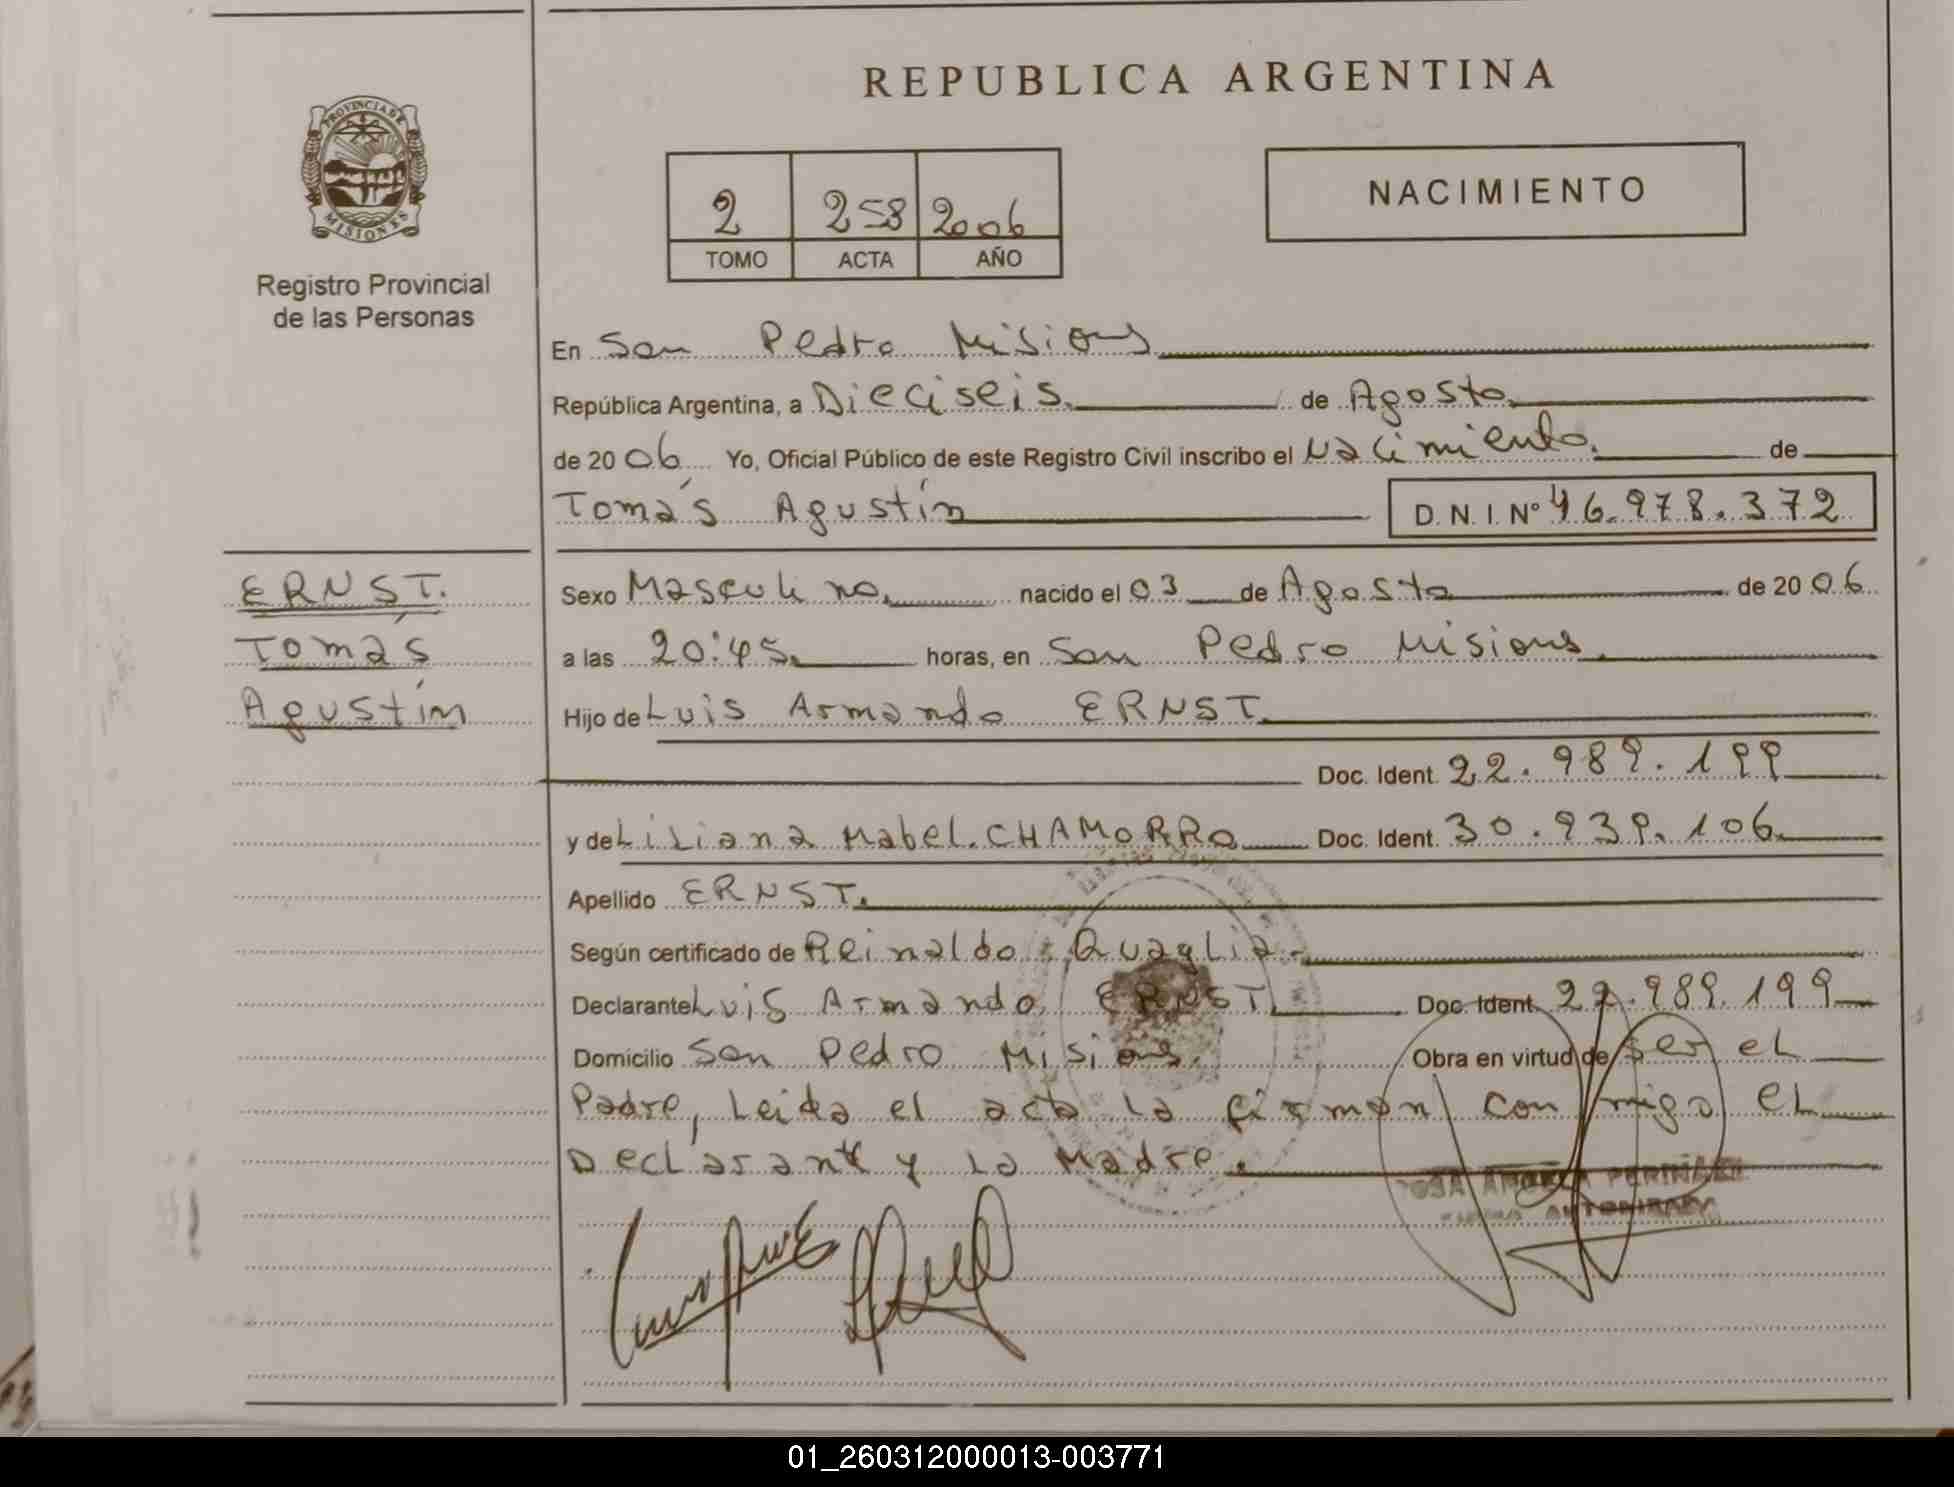 REPUBLICA ARGENTINA
PROVINCIA DE MISIONES
Registro Provincial
de las Personas
2 258 2006
TOMO ACTA AÑO
NACIMIENTO
En San Pedro Misiones
República Argentina, a Dieciseis. de Agosto.
de 2006 Yo, Oficial Público de este Registro Civil inscribo el Nacimiento. de
Tomás Agustín D. N. I. Nº 46.978.372
ERNST.
Tomás
Agustín
Sexo Masculino. nacido el 03 de Agosto de 2006
a las 20:45. horas, en San Pedro Misiones.
Hijo de Luis Armando ERNST.
Doc. Ident. 22.989.199
y de Liliana Mabel. CHAMORRO Doc. Ident. 30.939.106.
Apellido ERNST.
Según certificado de Reinaldo Quaglia.-
Declarante Luis Armando ERNST. Doc. Ident. 22.989.199
Domicilio San Pedro Misiones. Obra en virtud de ser el
Padre, Leida el acta la firman con migo el
Declarante y La Madre.
PERIÑA
01_260312000013-003771